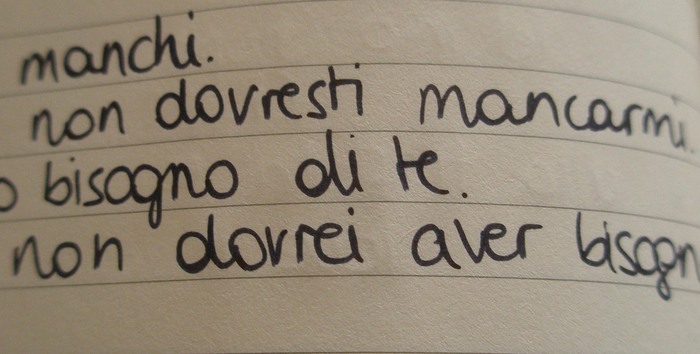 manchi.
non dovresti mancarmi.
o bisogno di te.
non dovrei aver bisogn